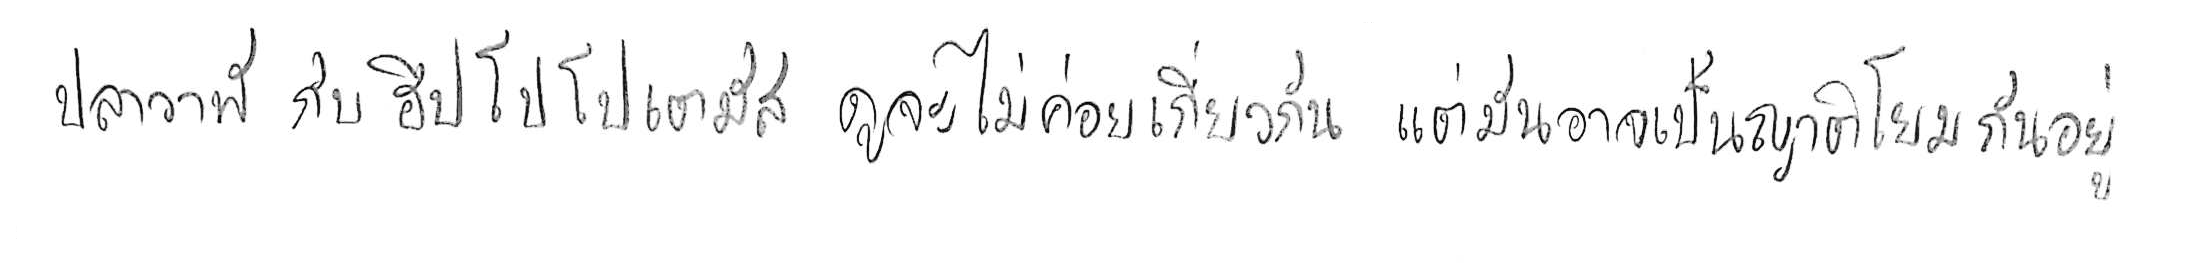 ปลาวาฬ กับฮิปโปโปเตมัส ดูจะไม่ค่อยเกี่ยวกัน แต่มันอาจเป็นญาติโยมกันอยู่